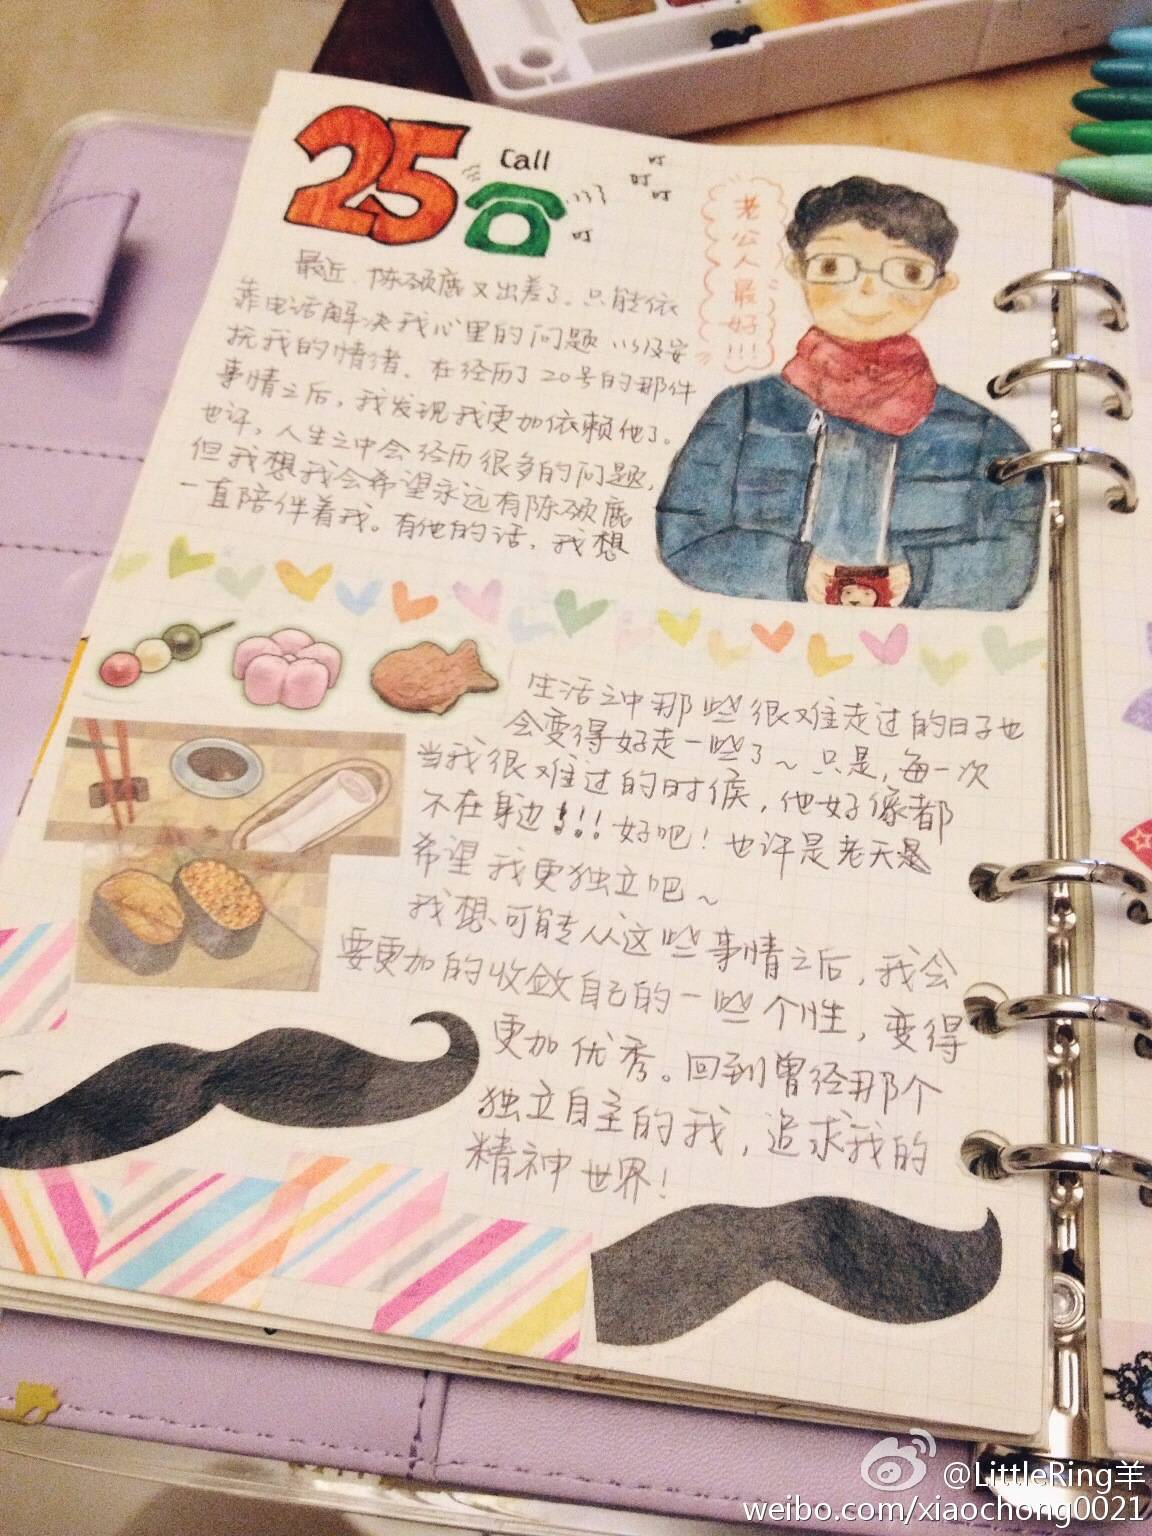 25
Call
叮
叮
叮
叮
老公人最好!!!
最近、陈颂鹿又出差了。只能依
靠电话解决我心里的问题以及安
抚我的情绪。在经历了20号的那件
事情之后,我发现我更加依赖他了。
也许,人生之中会经历很多的问题,
但我想我会希望永远有陈颂鹿
一直陪伴着我。有他的话,我想
生活之中那些很难走过的日子也
会变得好走一些了~只是,每一次
当我很难过的时候,他好像都
不在身边!!!好吧!也许是老天是
希望我更独立吧~
我想、可能从这些事情之后,我会
要更加的收敛自己的一些个性,变得
更加优秀。回到曾经那个
独立自主的我,追求我的
精神世界!
@LittleRing羊
weibo.com/xiaochong0021